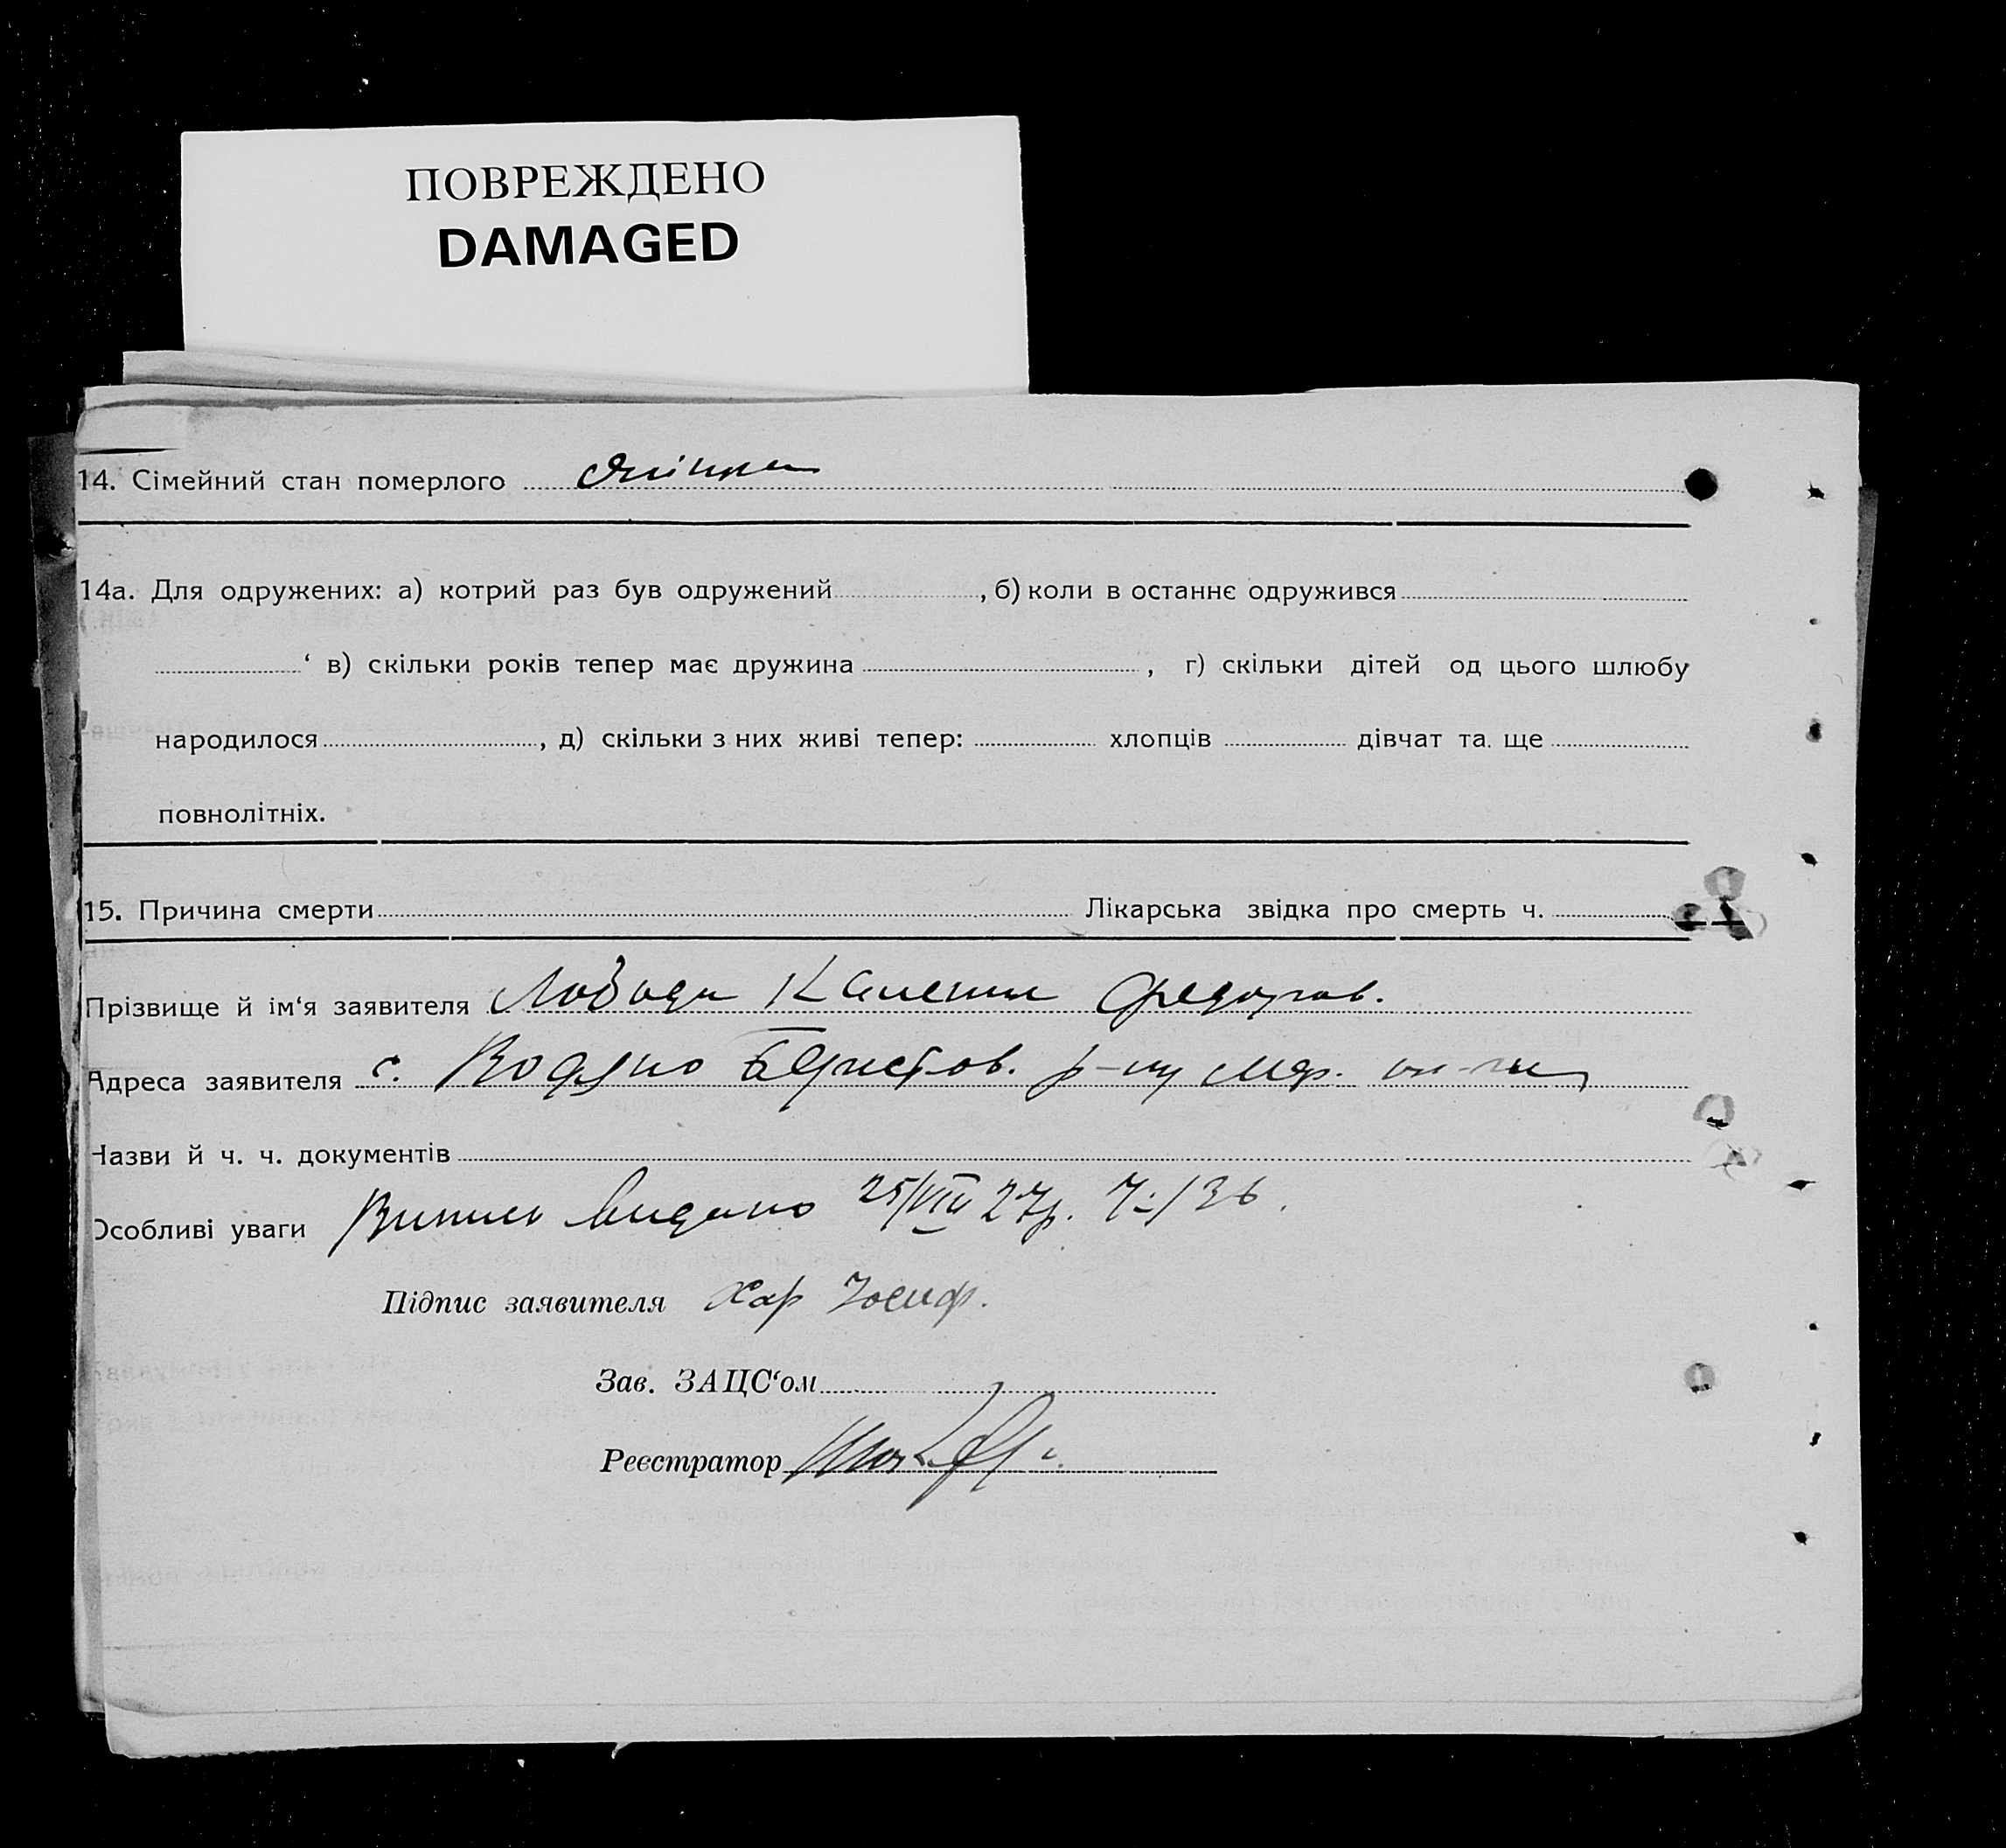 ПОВРЕЖДЕНО
DAMAGED
14. Сімейний стан померлого
14а. Для одружених: а) котрий раз був одружений , б) коли в останнє одружився
‘ в) скільки років тепер має дружина , г) скільки дітей од цього шлюбу
народилося , д) скільки з них живі тепер: хлопців дівчат та. ще
повнолітніх.
15. Причина смерти Лікарська звідка про смерть ч.
Прізвище й ім‘я заявителя Лобода
Адреса заявителя с. Водяно р-ну
Назви й ч. ч. документів
Особливі уваги Випись видано 25/VIII 27р.
Підпис заявителя Хар Йосиф.
Зав. ЗАЦС‘ом
Реєстратор